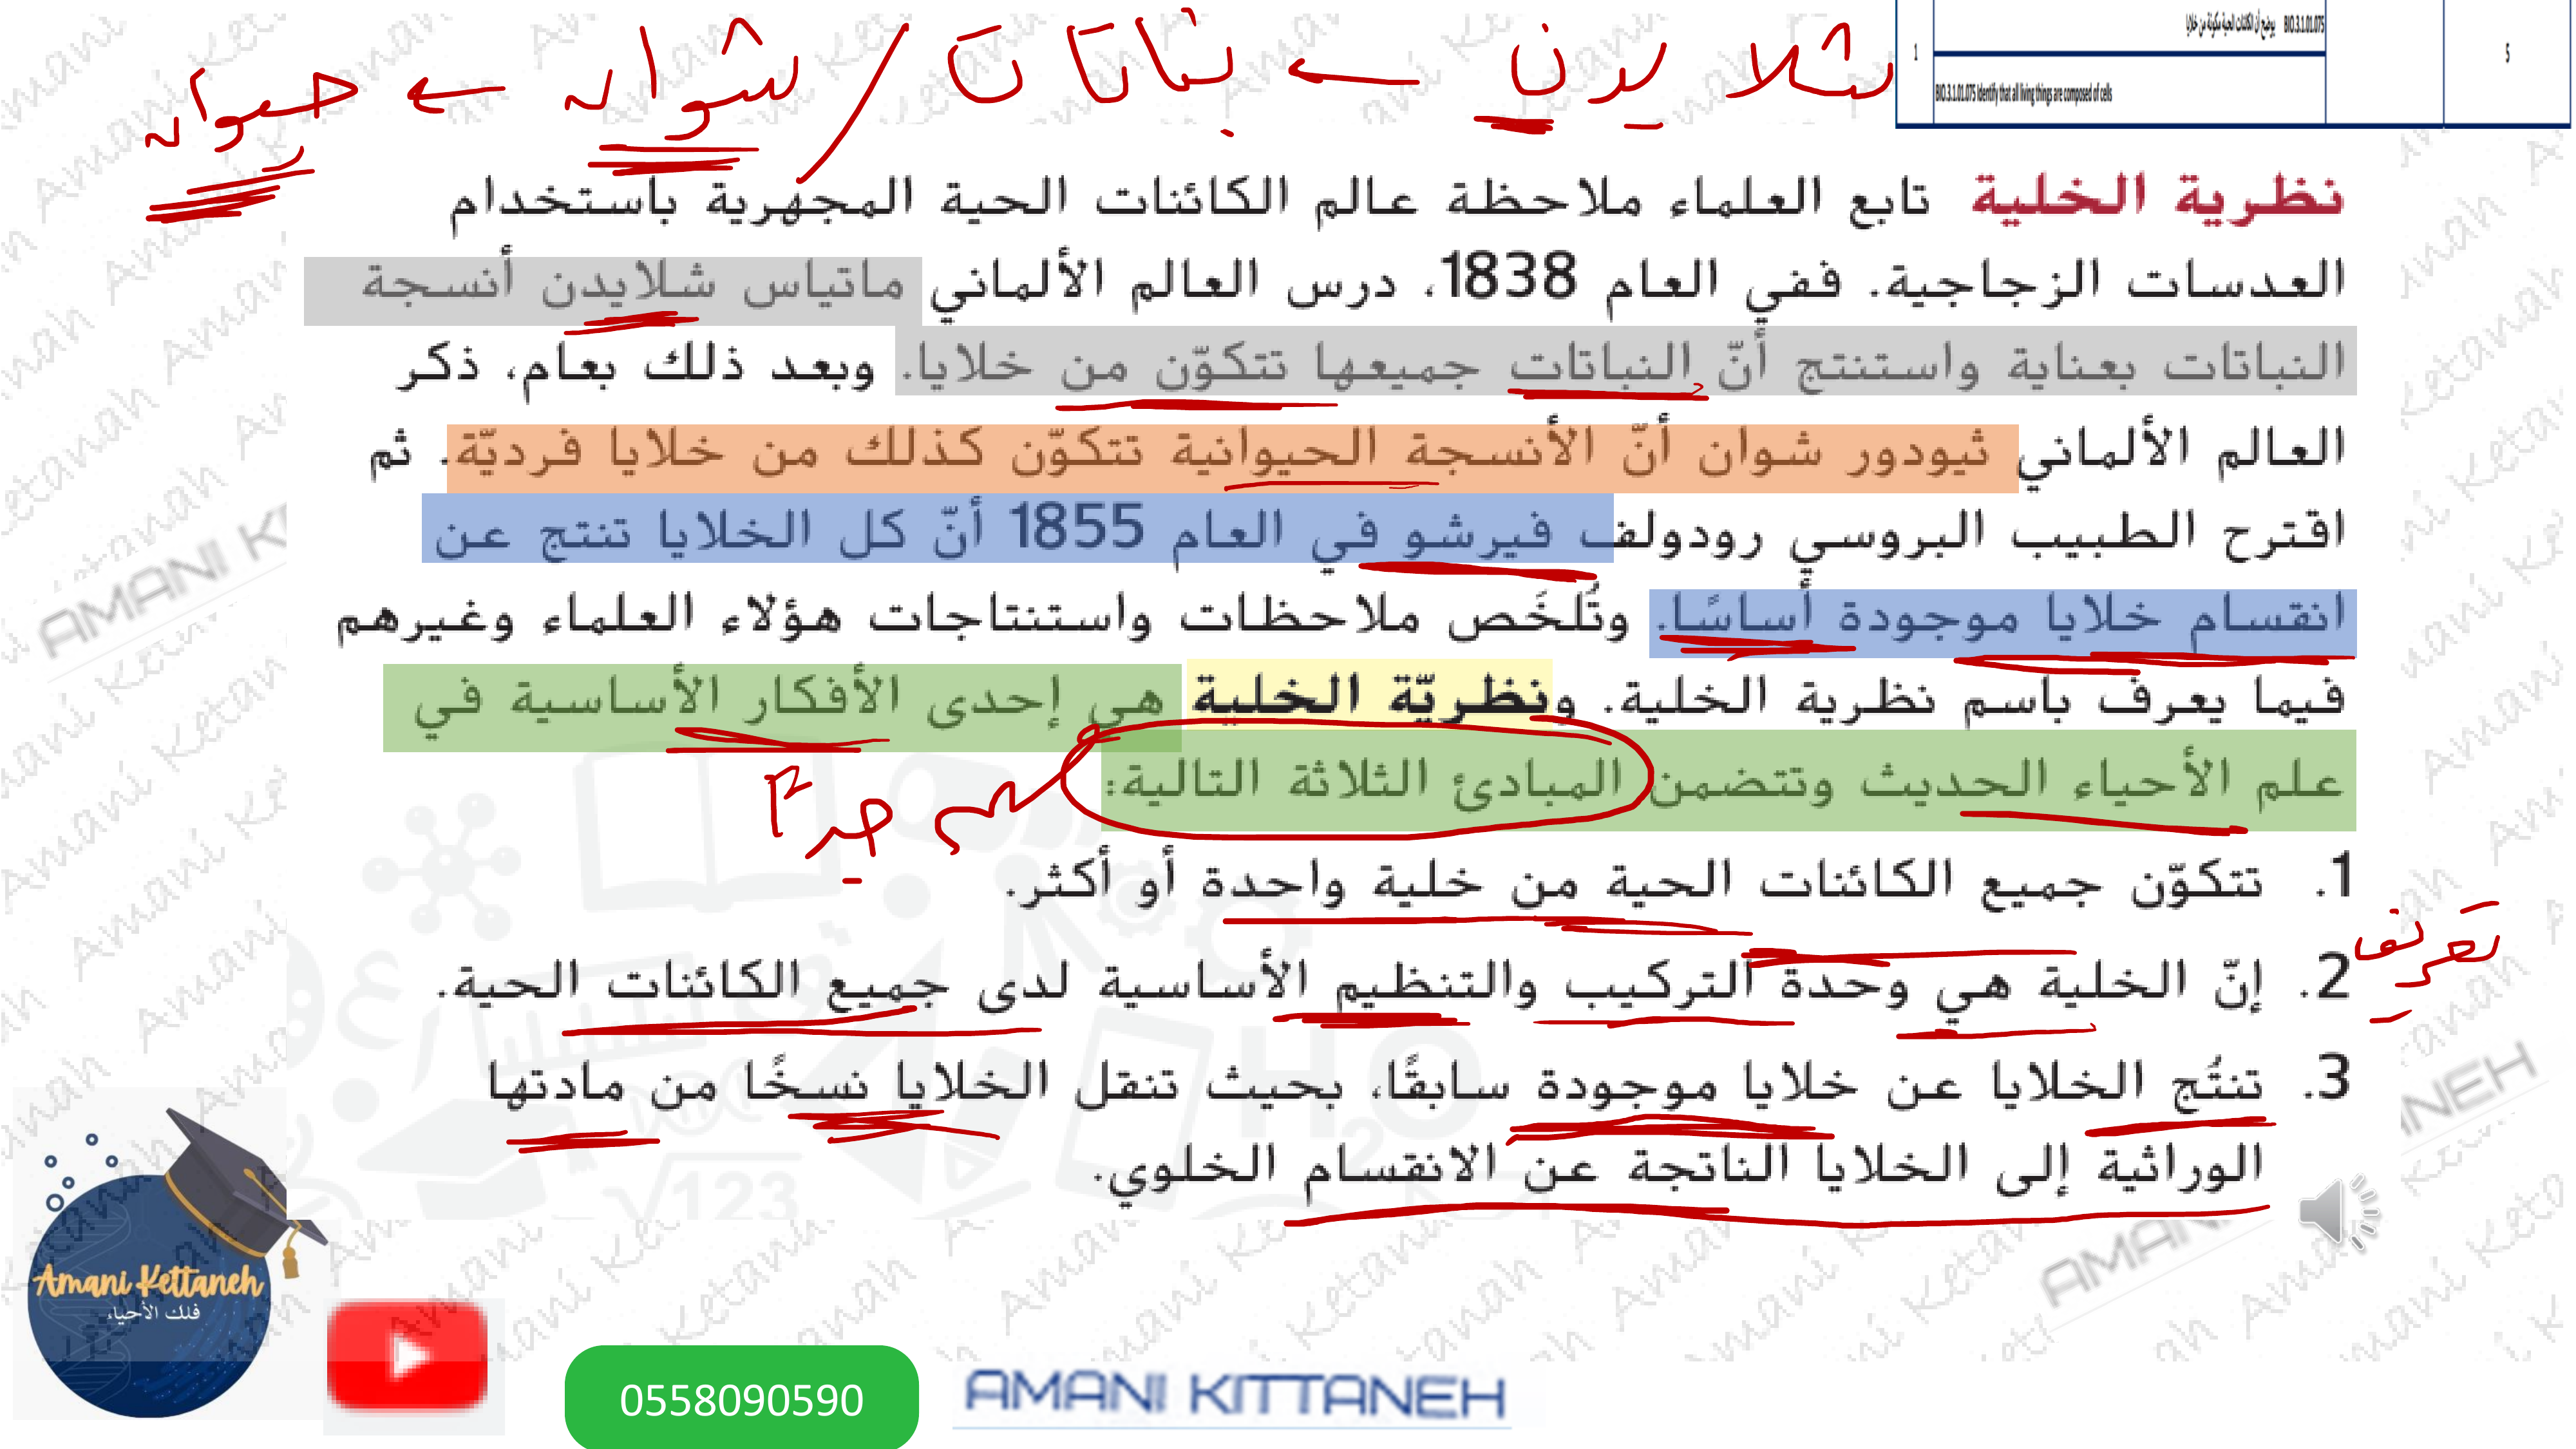 شلايدن ← نباتات / شوان ← حيوان
1
BIO.3.1.01.075 يوضح أن الكائنات الحية مكونة من خلايا
BIO.3.1.01.075 Identify that all living things are composed of cells
5
نظرية الخلية تابع العلماء ملاحظة عالم الكائنات الحية المجهرية باستخدام
العدسات الزجاجية. ففي العام 1838، درس العالم الألماني ماتياس شلايدن أنسجة
النباتات بعناية واستنتج أنّ النباتات جميعها تتكوّن من خلايا. وبعد ذلك بعام، ذكر
العالم الألماني ثيودور شوان أنّ الأنسجة الحيوانية تتكوّن كذلك من خلايا فرديّة. ثم
اقترح الطبيب البروسي رودولف فيرشو في العام 1855 أنّ كل الخلايا تنتج عن
انقسام خلايا موجودة أساسًا. وتُلخَص ملاحظات واستنتاجات هؤلاء العلماء وغيرهم
فيما يعرف باسم نظرية الخلية. ونظريّة الخلية هي إحدى الأفكار الأساسية في
علم الأحياء الحديث وتتضمن المبادئ الثلاثة التالية:
1. تتكوّن جميع الكائنات الحية من خلية واحدة أو أكثر.
تعريف
2. إنّ الخلية هي وحدة التركيب والتنظيم الأساسية لدى جميع الكائنات الحية.
3. تنتُج الخلايا عن خلايا موجودة سابقًا، بحيث تنقل الخلايا نسخًا من مادتها
الوراثية إلى الخلايا الناتجة عن الانقسام الخلوي.
Amani Kettaneh
فلك الأحياء
0558090590
AMANI KITTANEH